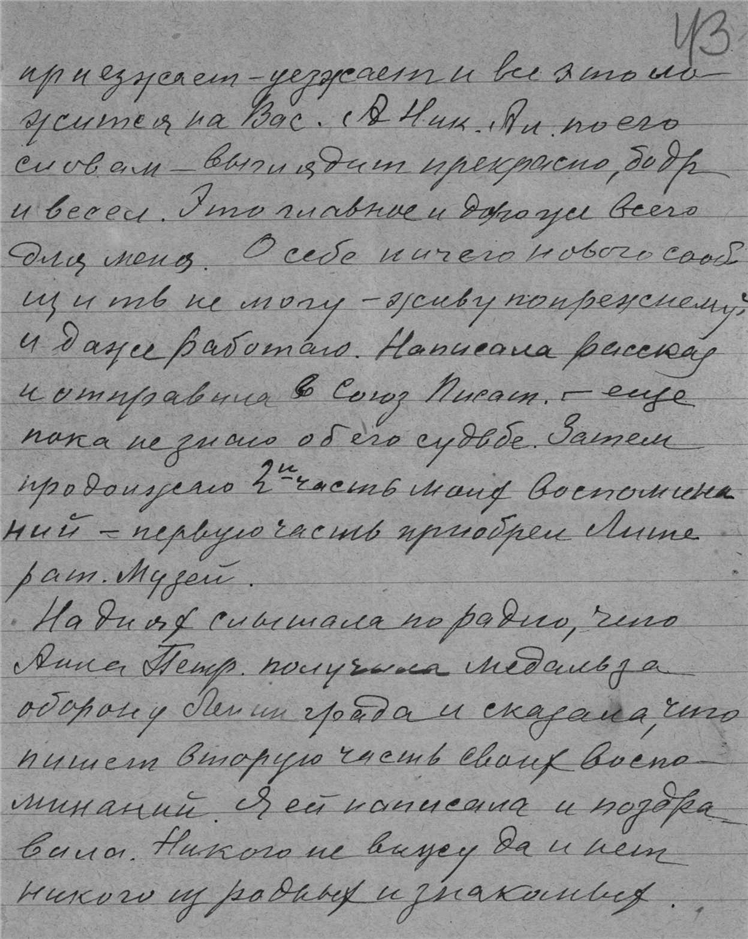 43
приезжает – уезжает и все это ло-
жится на Вас. А Ник. Ал. по его
словам – выглядит прекрасно, бодр
и весел. Это главное и дороже всего
для меня. О себе ничего нового сооб
щить не могу – живу попрежнему
и даже работаю. Написала рассказ
и отправила в Союз Писат. – еще
пока не знаю об его судьбе. Затем
продолжаю 2ю часть моих воспомина
ний – первую часть приобрел Лите
рат. Музей.
На днях слышала по радио, что
Анна Петр. получила медаль за
оборону Ленинграда и сказала, что
пишет вторую часть своих воспо-
минаний. Я ей написала и поздра-
вила. Никого не вижу да и нет
никого из родных и знакомых.